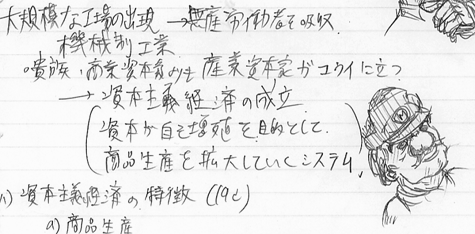 大規模な工場の出現 → 無産労働者を吸収.
機械制工業
・貴族・商業資本家よりも 産業資本家がユウイに立つ
→ 資本主義経済の成立
資本が自己増殖を目的として.
商品生産を拡大していくシステム.
ハ) 資本主義経済の特徴 (19c)
a) 商品生産